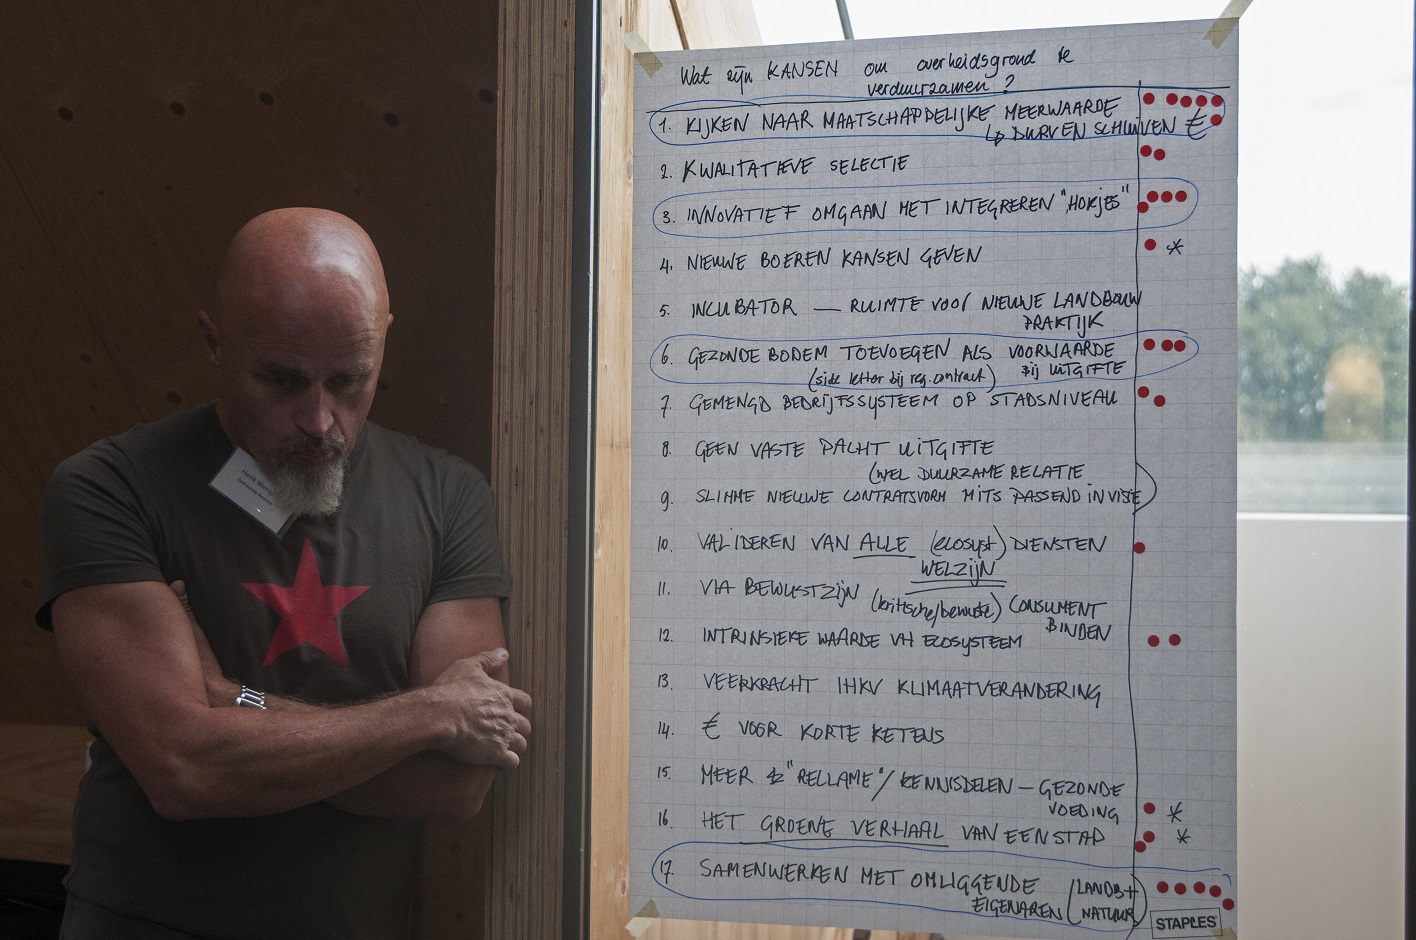 Wat zijn KANSEN om overheidsgrond te
verduurzamen?
1. KIJKEN NAAR MAATSCHAPPELIJKE MEERWAARDE
↳ DURVEN SCHUIVEN €
2. KWALITATIEVE SELECTIE
3. INNOVATIEF OMGAAN MET INTEGREREN "HOKJES"
4. NIEUWE BOEREN KANSEN GEVEN *
5. INCUBATOR — RUIMTE VOOR NIEUWE LANDBOUW
PRAKTIJK
6. GEZONDE BODEM TOEVOEGEN ALS VOORWAARDE
(side letter bij reg. contract) BIJ UITGIFTE
7. GEMENGD BEDRIJFSSYSTEEM OP STADSNIVEAU
8. GEEN VASTE PACHT UITGIFTE
(WEL DUURZAME RELATIE
9. SLIMME NIEUWE CONTRATSVORM MITS PASSEND IN VISIE
10. VALIDEREN VAN ALLE (ecosyst) DIENSTEN
WELZIJN
11. VIA BEWUSTZIJN (kritische/bewuste) CONSUMENT
BINDEN
12. INTRINSIEKE WAARDE VH ECOSYSTEEM
13. VEERKRACHT IHKV KLIMAATVERANDERING
14. € VOOR KORTE KETENS
15. MEER "RELLAME"/KENNISDELEN — GEZONDE
VOEDING *
16. HET GROENE VERHAAL VAN EEN STAD *
17. SAMENWERKEN MET OMLIGGENDE (LANDB+
EIGENAREN NATUUR)
STAPLES
Henk